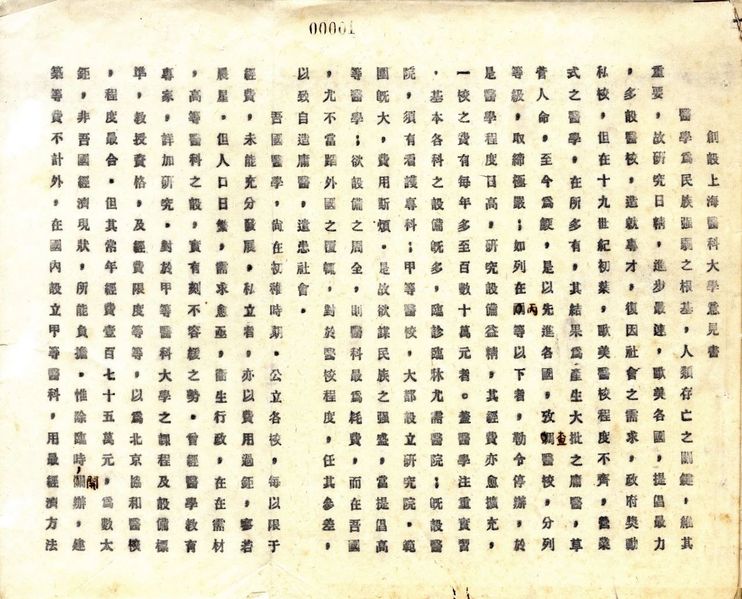 00001
創設上海醫科大學意見書
醫學爲民族强弱之根基，人類存亡之關鍵，維其
重要，故研究日精，進步最速，歐美各國，提倡最力
，多設醫校，造就專才，復因社會之需求，政府奬勵
私校，但在十九世紀初葉，歐美醫校程度不齊，營業
式之醫學，在所多有，其結果爲產生大批之庸醫，草
菅人命，至今爲鯁，是以先進各國，攷查醫校，分列
等級，取締極嚴；如列在丙等以下者，勒令停辦，於
是醫學程度日高，研究設備益精，其經費亦愈擴充，
一校之費有每年多至百數十萬元者。蓋醫學注重實習
，基本各科之設備既多，臨診臨牀尤需醫院；既設醫
院，須有看護專科；甲等醫校，大都設立研究院。範
圍既大，費用斯煩。是故欲謀民族之强盛，當提倡高
等醫學；欲設備之周全，則醫科最爲耗費，而在吾國
，尤不當蹈外國之覆轍，對於醫校程度，任其參差，
以致自造庸醫，遺患社會。
吾國醫學，尙在初稚時期。公立各校，每以限于
經費，未能充分發展，私立者，亦以費用過鉅，寥若
晨星。但人口日繁，需求愈亟，衛生行政，在在需材
，高等醫科之設，實有刻不容緩之勢。曾經醫學教育
專家，詳加研究。對於甲等醫科大學之課程及設備標
準，教授資格，及經費限度等等，以爲北京協和醫校
，程度最合。但其常年經費壹百七十五萬元，爲數太
鉅，非吾國經濟現狀，所能負擔。惟除臨時開辦，建
築等費不計外，在國內設立甲等醫科，用最經濟方法